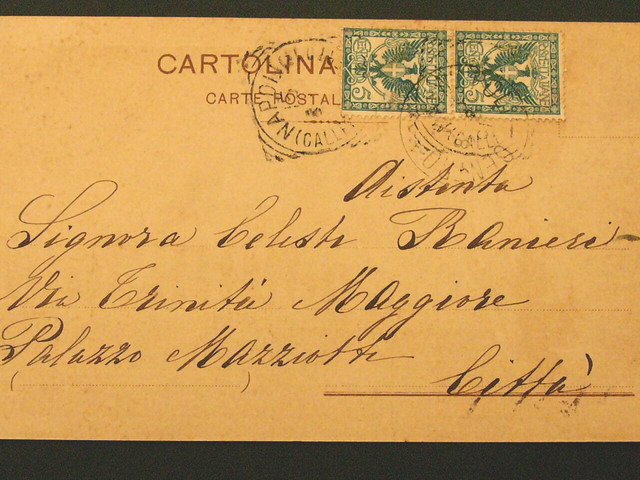 CARTOLINA
CARTE POSTAL
NAPOLI
(GALLE
5
5
Distinta
Signora Celeste Ranieri
Via Trinità Maggiore
Palazzo Mazziotti
Città